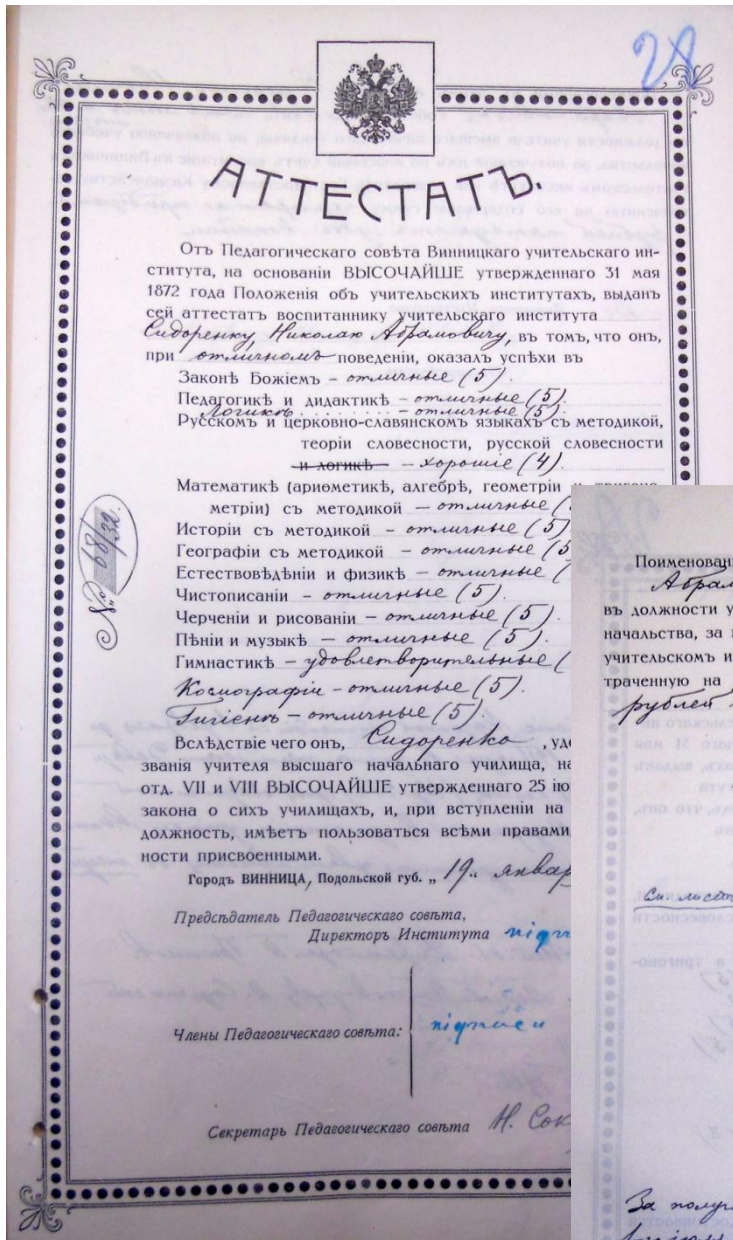 28
АТТЕСТАТЪ.
Отъ Педагогическаго совѣта Винницкаго учительскаго ин-
ститута, на основаніи ВЫСОЧАЙШЕ утвержденнаго 31 мая
1872 года Положенія объ учительскихъ институтахъ, выданъ
сей аттестатъ воспитаннику учительскаго института
Сидоренку, Николаю Абрамовичу, въ томъ, что онъ,
при отличномъ поведеніи, оказалъ успѣхи въ
Законѣ Божіемъ – отличные (5).
Педагогикѣ и дидактикѣ – отличные (5)
Логикѣ – отличные (5).
Русскомъ и церковно-славянскомъ языкахъ съ методикой,
теоріи словесности, русской словесности
и логикѣ – хорошіе (4).
Математикѣ (ариѳметикѣ, алгебрѣ, геометріи и тригоно-
метріи) съ методикой – отличные (
Исторіи съ методикой – отличные (5)
Географіи съ методикой – отличные (5
Естествовѣдѣніи и физикѣ – отличные (
Чистописаніи – отличные (5).
Черченіи и рисованіи – отличные (5).
Пѣніи и музыкѣ – отличные (5).
Гимнастикѣ – удовлетворительные (
Космографіи – отличные (5).
Гигіенѣ – отличные (5)
Вслѣдствіе чего онъ, Сидоренко, удо
званія учителя высшаго начальнаго училища, на
отд. VII и VIII ВЫСОЧАЙШЕ утвержденнаго 25 ію
закона о сихъ училищахъ, и, при вступленіи на
должность, имѣетъ пользоваться всѣми правами
ности присвоенными.
Городъ ВИННИЦА, Подольской губ. „ 19 „ январ
Предсѣдатель Педагогическаго совѣта,
Директоръ Института підп
Члены Педагогическаго совѣта: підписи
Секретарь Педагогическаго совѣта Н. Сок
№ 68/32.
Поименован
Абрам
въ должности у
начальства, за
учительскомъ и
траченную на
рублей
См. лист
За получ